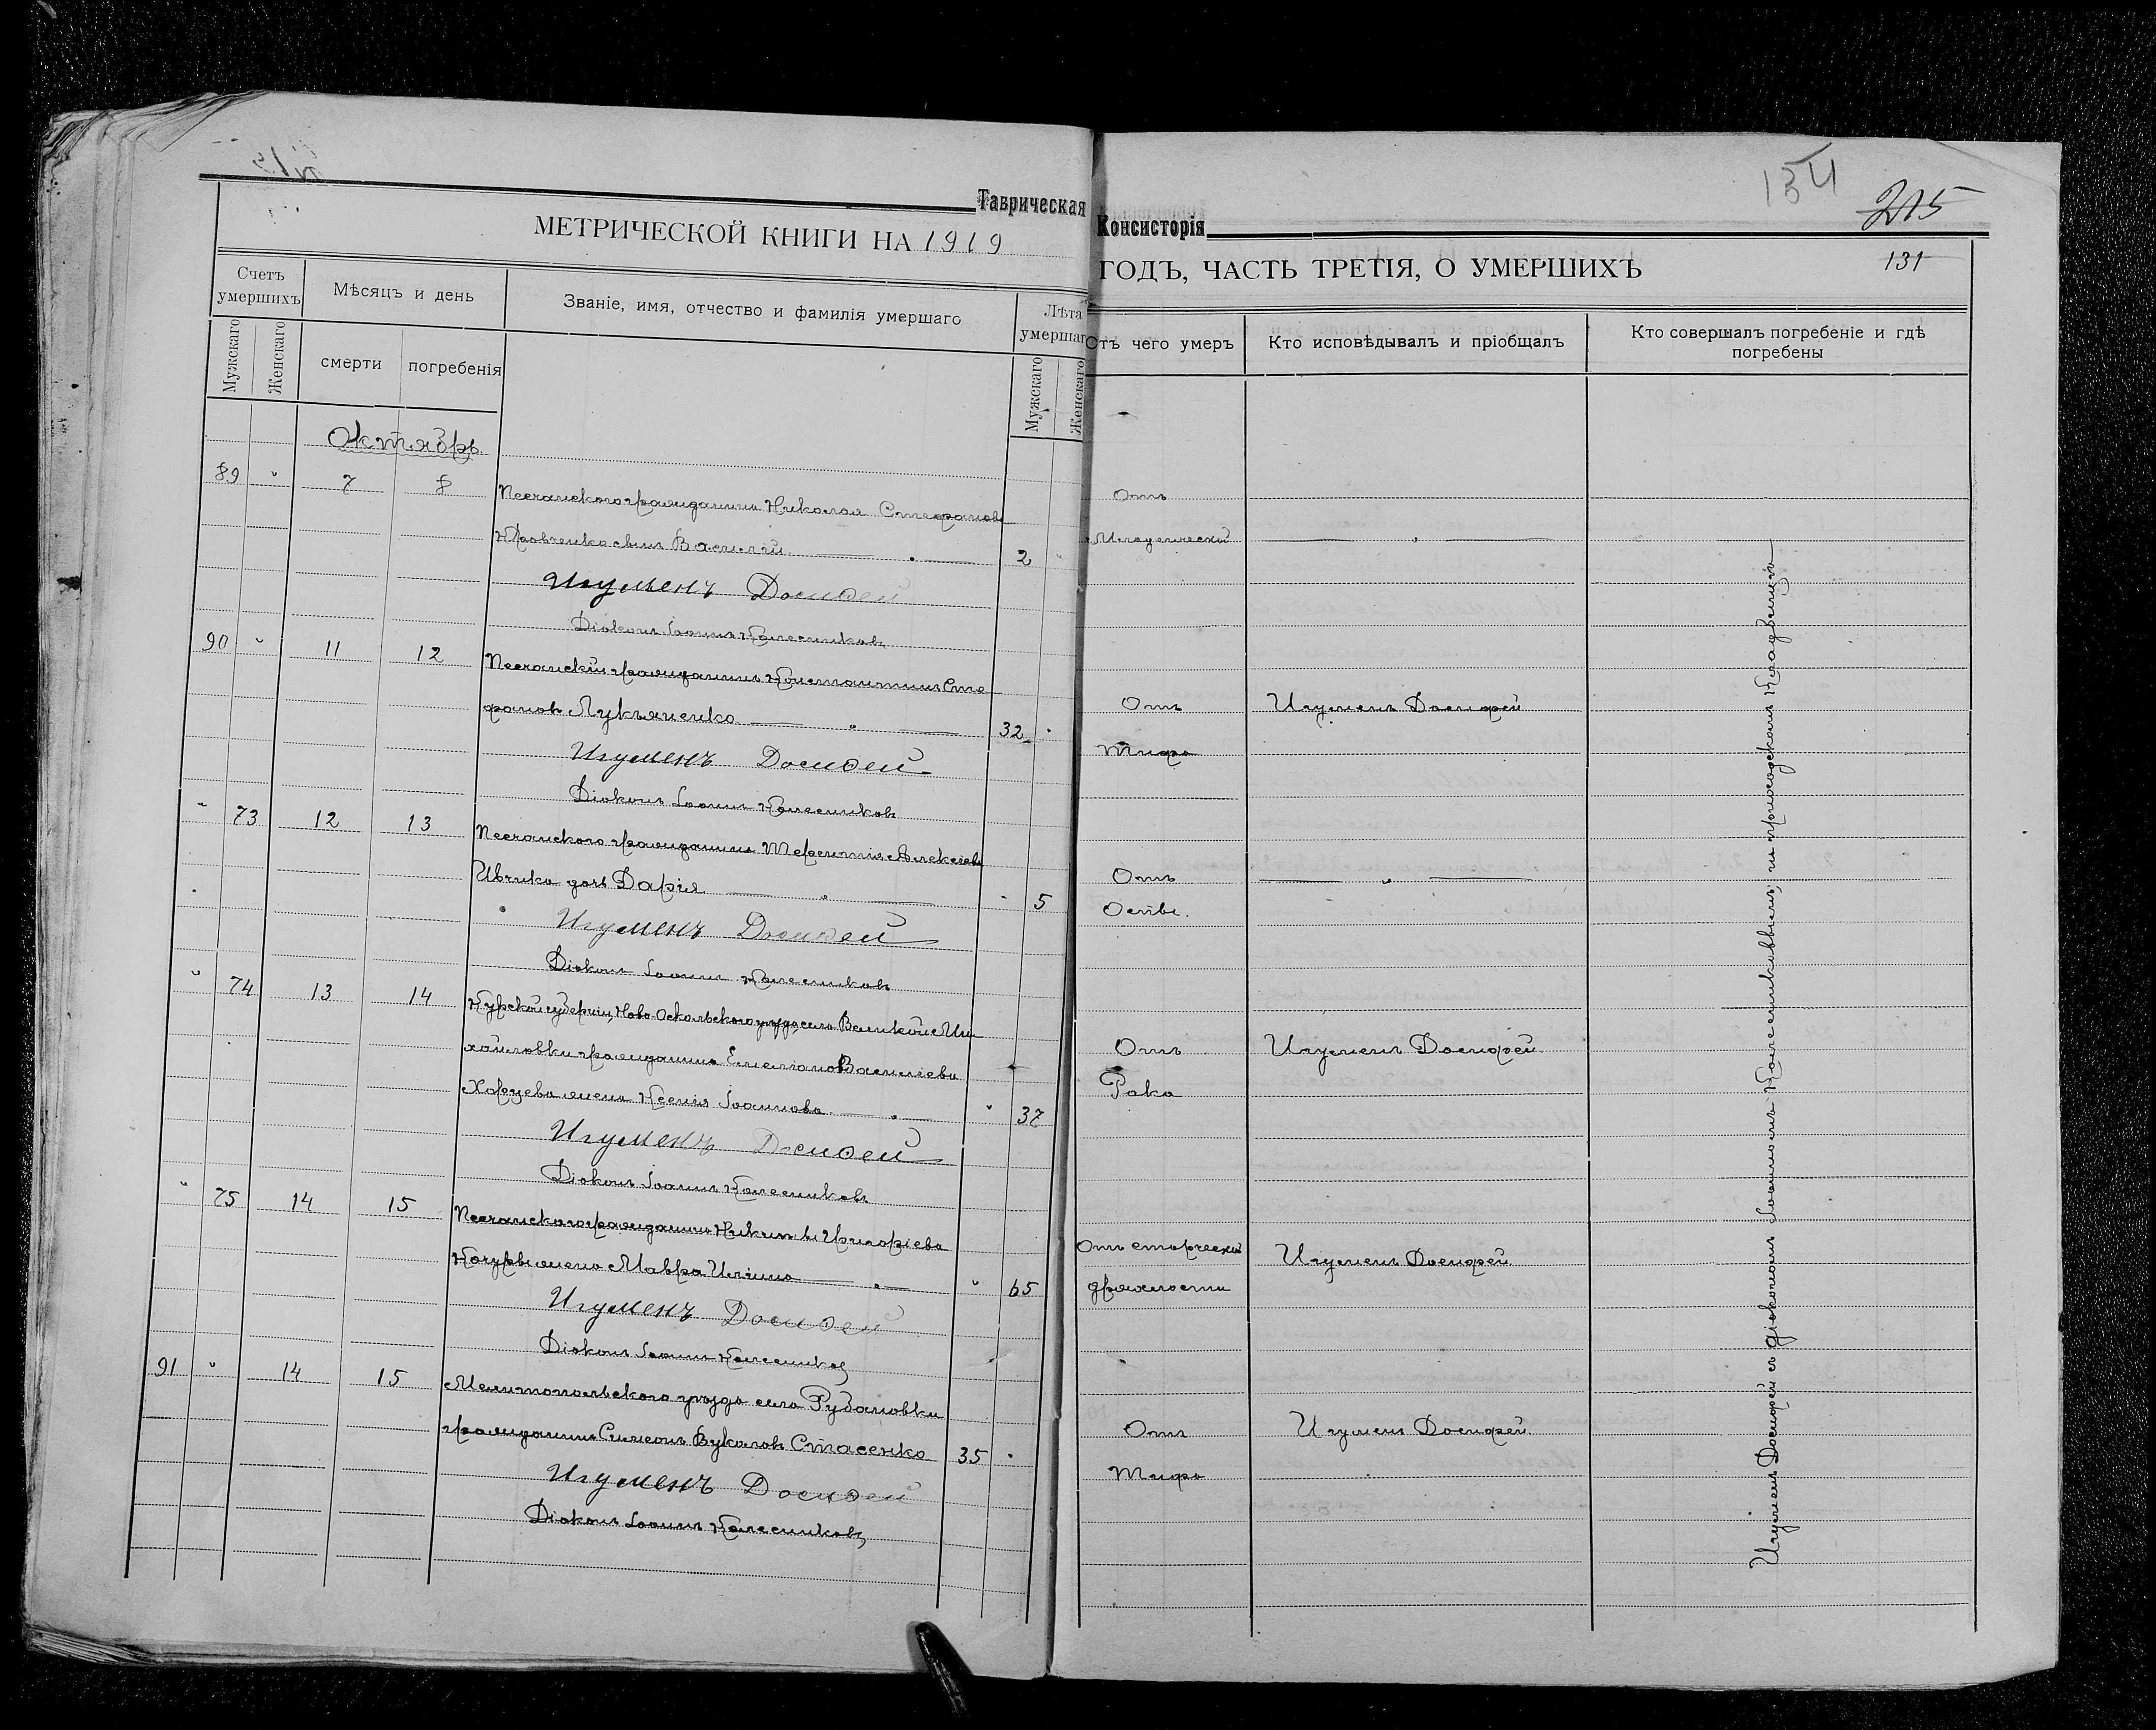 134
215
Таврическая Консисторія
МЕТРИЧЕСКОЙ КНИГИ НА 1919 ГОДЪ, ЧАСТЬ ТРЕТІЯ, О УМЕРШИХЪ
131
Счетъ умершихъ
Мужскаго
Женскаго
Мѣсяцъ и день
смерти
погребенія
Званіе, имя, отчество и фамилія умершаго
Лѣта умершаг
Мужскаго
Женскаго
Отъ чего умеръ
Кто исповѣдывалъ и пріобщалъ
Кто совершалъ погребеніе и гдѣ
погребены
Октябрь.
89 " 7 8 Песчанского гражданина Николая Стефанова Отъ
сынъ Василій — " — 2 " Младенческой — " —
Игуменъ Досиѳей
Діаконъ Іоаннъ Колесниковъ
90 " 11 12 Песчанскій гражданинъ Константинъ Сте-
фановъ Лукьяненко — " — 32 " Отъ Игуменъ Досиѳей
Тифа
Игуменъ Досиѳей
Діаконъ Іоаннъ Колесниковъ
" 73 12 13 Песчанского гражданина Терентія Алексѣева
Ивчика дочь Дарія — " — " 5 Отъ — " —
Оспы.
Игуменъ Досиѳей
Діаконъ Іоаннъ Колесниковъ
" 74 13 14 Курской губерніи, Ново Оскольского уѣзда, села Великой Ми-
хайловки гражданина Емеліана Васильева Отъ Игуменъ Досиѳей
жена Ксенія Іоаннова — " — " 37 Рака
Игуменъ Досиѳей
Діаконъ Іоаннъ Колесниковъ
" 75 14 15 Песчанского гражданина Никиты
жена Мавра Илiина — " — " 65 Отъ старческой Игуменъ Досиѳей
дряхлости
Игуменъ Досиѳей
Діаконъ Іоаннъ Колесниковъ
91 " 14 15 Мелитопольского уѣзда села Рубановки
гражданинъ Симеонъ Вуколовъ Стасенко 35 " Отъ Игуменъ Досиѳей
Тифа
Игуменъ Досиѳей
Діаконъ Іоаннъ Колесниковъ
Игуменъ Досиѳей съ діакономъ Іоанномъ Колесниковымъ, на приходскомъ кладбищѣ